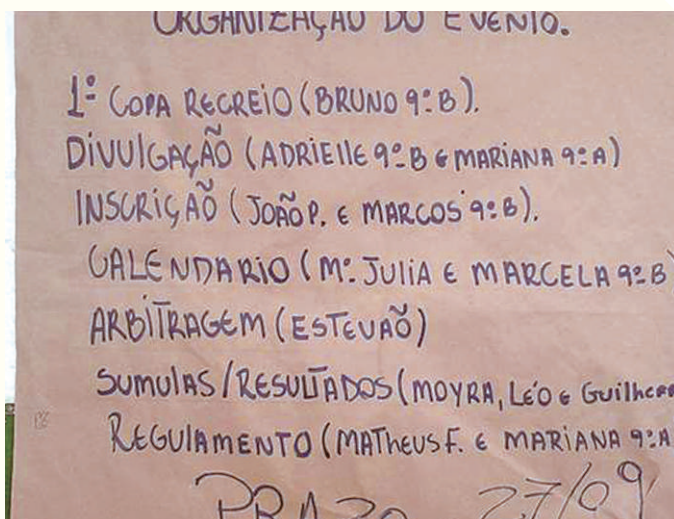 ORGANIZAÇÃO DO EVENTO.
1º COPA RECREIO (BRUNO 9º B).
DIVULGAÇÃO (ADRIELLE 9º B E MARIANA 9º A)
INSCRIÇÃO (JOÃO P. E MARCOS 9º B).
CALENDARIO (Mª JULIA E MARCELA 9º B)
ARBITRAGEM (ESTEVÃO)
SUMULAS/RESULTADOS (MOYRA, LÉO E Guilherm
REGULAMENTO (MATHEUS F. E MARIANA 9º A
PRAZO 27/09